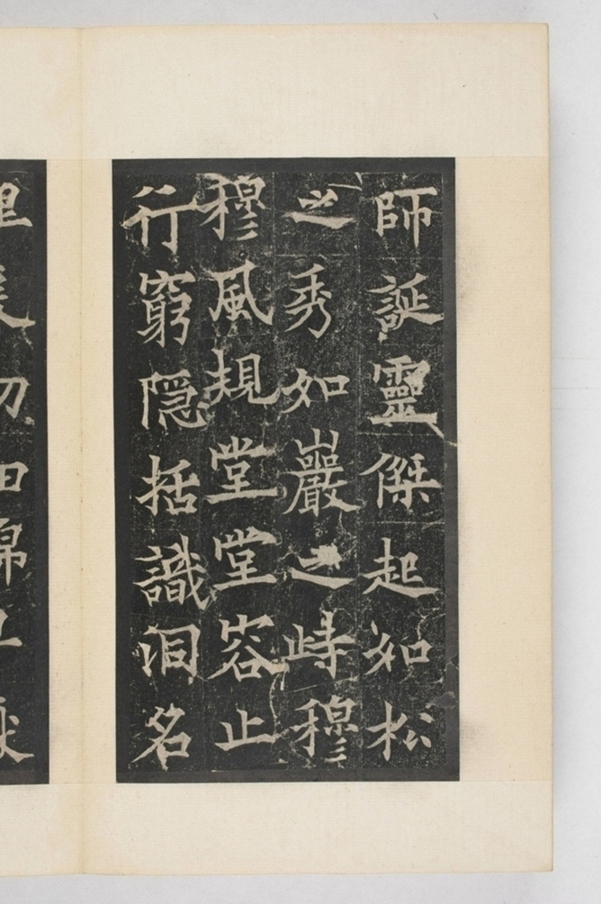 師誕靈傑起如松
之秀如巖之峙穆
穆風規堂堂容止
行窮隱括識洞名